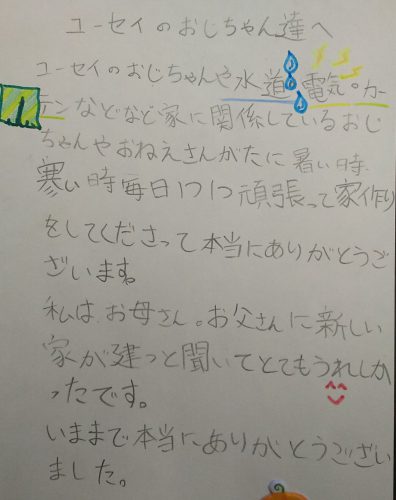 ユーセイのおじちゃん達へ
ユーセイのおじちゃんや水道電気。カー
テンなどなど家に関係しているおじ
ちゃんやおねえさんがたに暑い時、
寒い時毎日1つ1つ頑張って家作り
をしてくださって本当にありがとうご
ざいます。
私は、お母さん。お父さんに新しい
家が建つと聞いてとてもうれしか
ったです。
いままで本当にありがとうござい
ました。